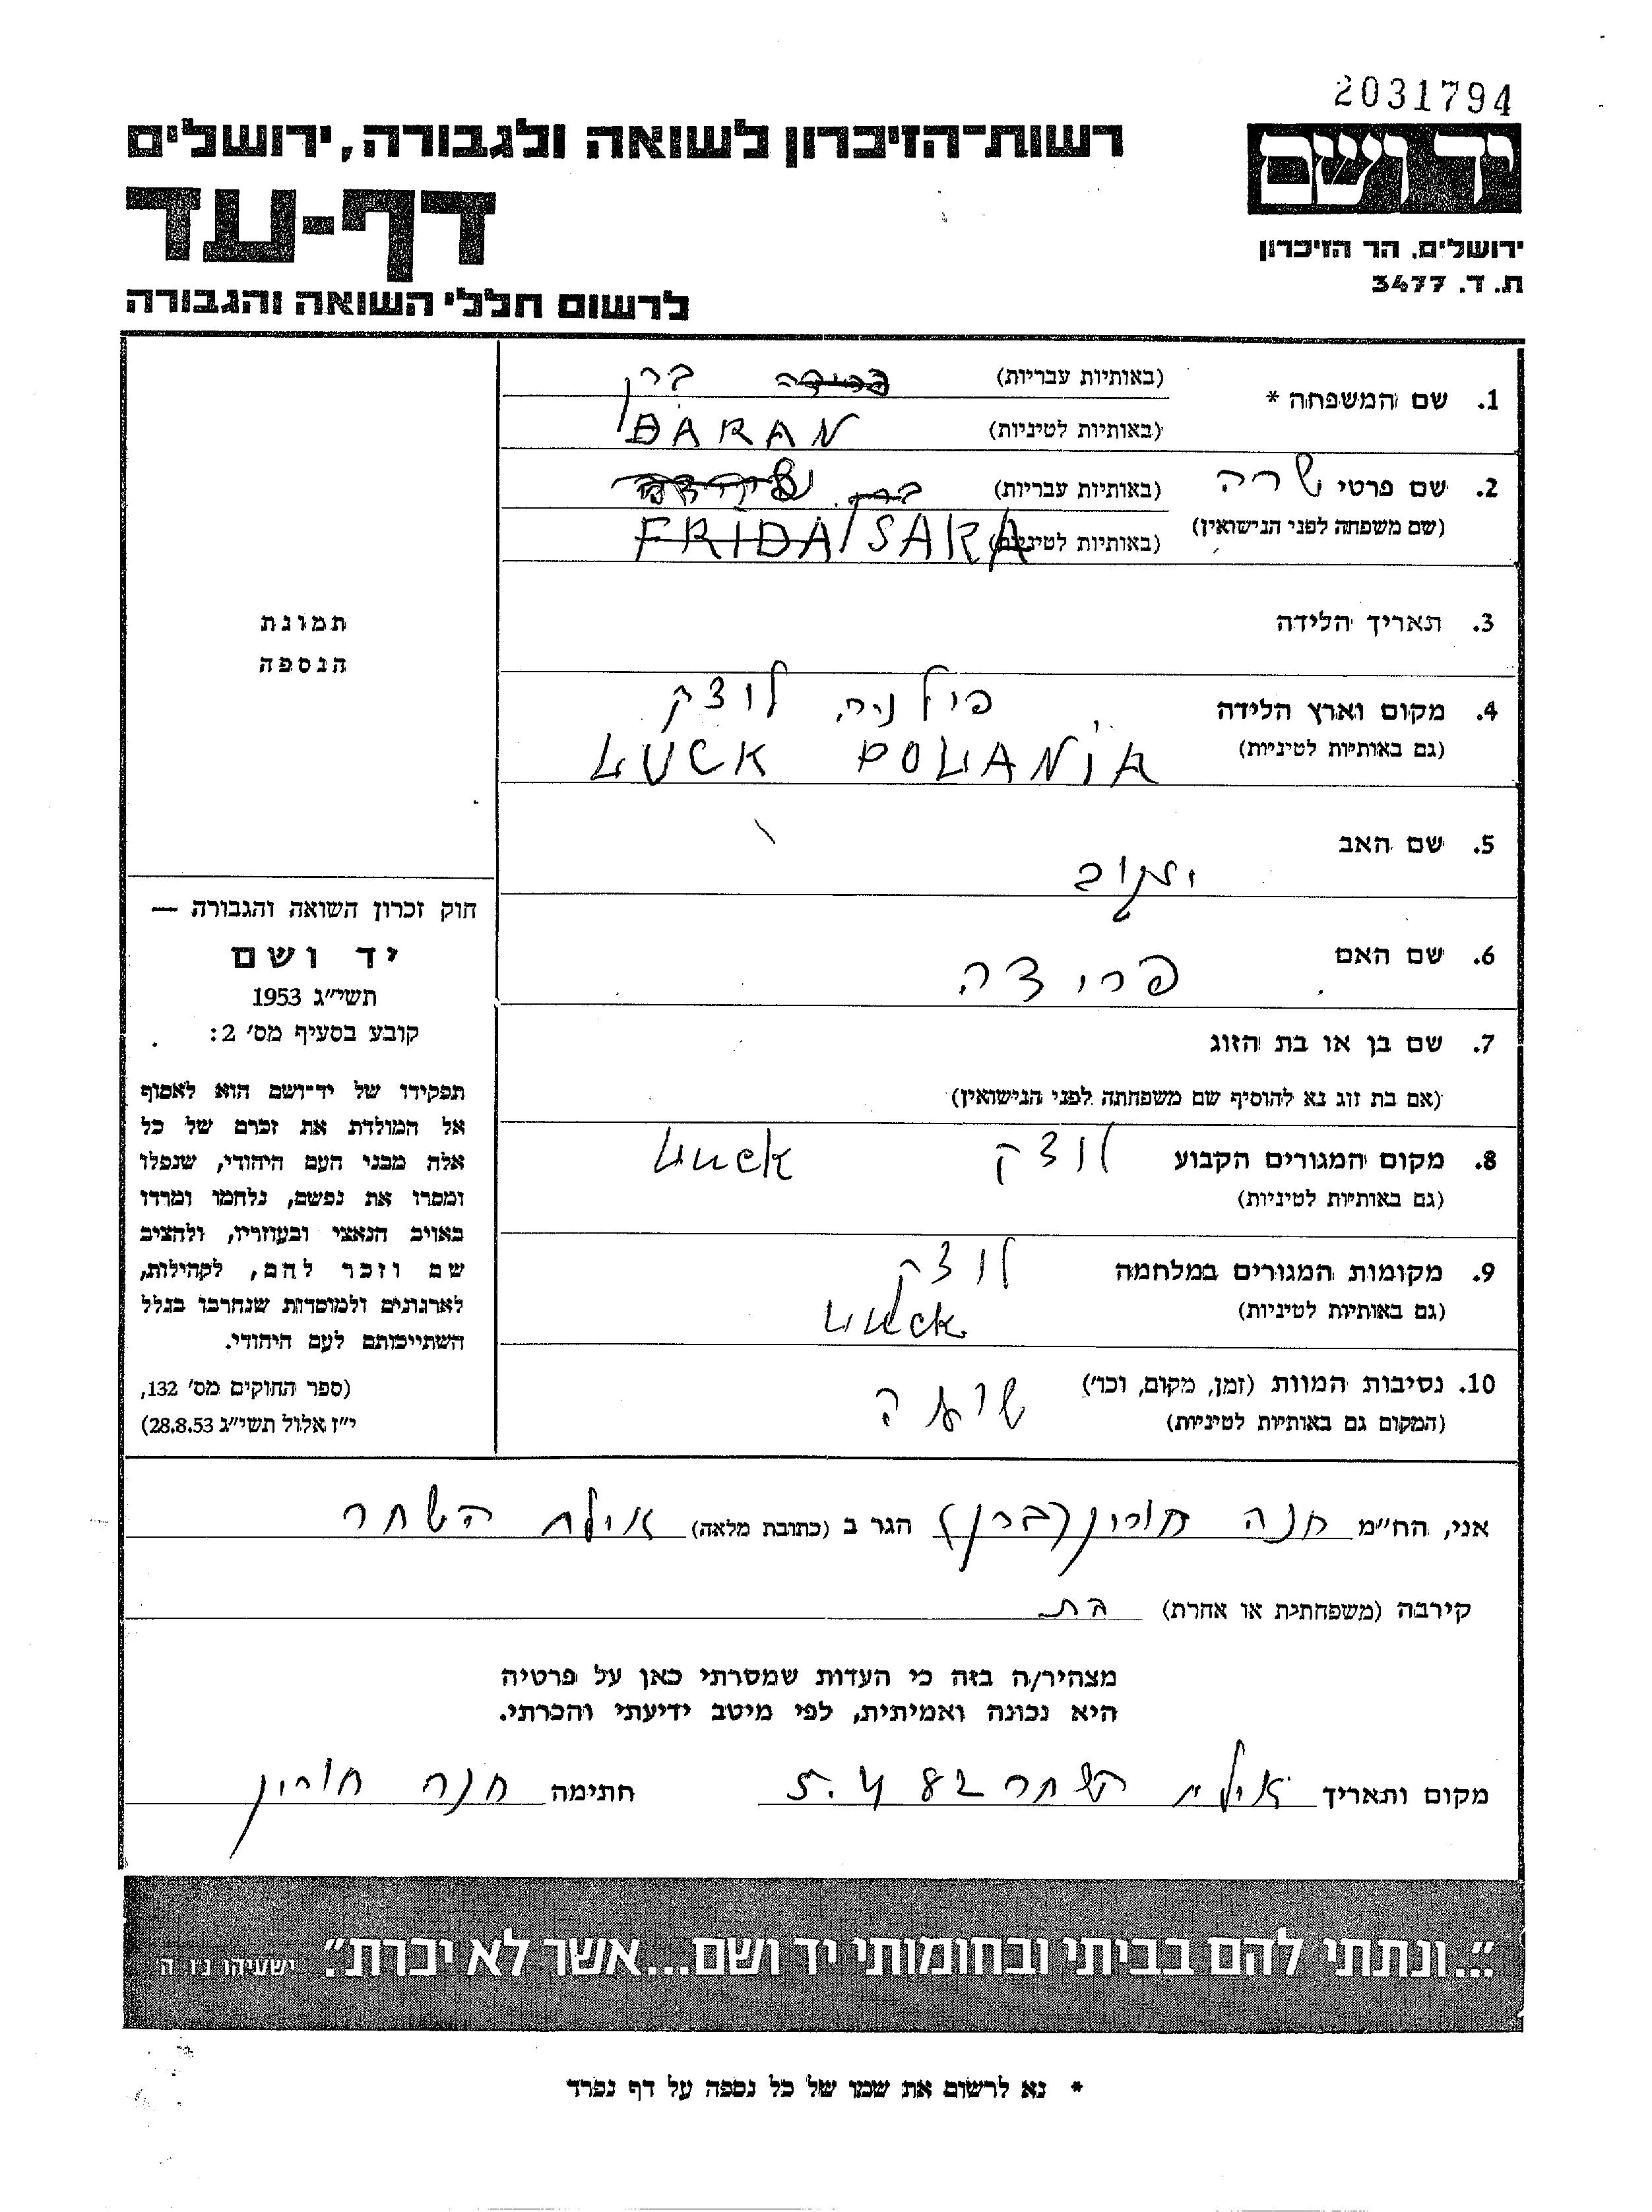 2031794
יד ושם
ירושלים. הר הזיכרון
ת. ד. 3477
רשות-הזיכרון לשואה ולגבורה, ירושלים
דף-עד
לרשום חללי השואה והגבורה
1. שם המשפחה *
(באותיות עבריות) פרידה ברן
(באותיות לטיניות) BARAN
2. שם פרטי שרה
(שם משפחה לפני הנישואין)
(באותיות עבריות) ברן
(באותיות לטיניות) FRIDA/SARA
3. תאריך הלידה
4. מקום וארץ הלידה פולניה, לוצק
(גם באותיות לטיניות) LUCK POLANIA
5. שם האב
יעקוב
6. שם האם
פרידה
7. שם בן או בת הזוג
(אם בת זוג נא להוסיף שם משפחתה לפני הנישואין)
8. מקום המגורים הקבוע לוצק Luck
(גם באותיות לטיניות)
9. מקומות המגורים במלחמה לוצק
(גם באותיות לטיניות) Luck
10. נסיבות המוות (זמן, מקום, וכו')
(המקום גם באותיות לטיניות) שואה
תמונת
הנספה
חוק זכרון השואה והגבורה —
יד ושם
תשי"ג 1953
קובע בסעיף מס' 2:
תפקידו של יד-ושם הוא לאסוף
אל המולדת את זכרם של כל
אלה מבני העם היהודי, שנפלו
ומסרו את נפשם, נלחמו ומרדו
באויב הנאצי ובעוזריו, ולהציב
שם וזכר להם, לקהילות,
לארגונים ולמוסדות שנחרבו בגלל
השתייכותם לעם היהודי.
(ספר החוקים מס' 132,
י"ז אלול תשי"ג 28.8.53)
אני, הח"מ חנה חורין (ברן) הגר ב (כתובת מלאה) אילת השחר
קירבה (משפחתית או אחרת) בת
מצהיר/ה בזה כי העדות שמסרתי כאן על פרטיה
היא נכונה ואמיתית, לפי מיטב ידיעתי והכרתי.
מקום ותאריך אילת השחר 5.4 82 חתימה חנה חורין
"...ונתתי להם בביתי ובחומותי יד ושם...אשר לא יכרת". ישעיהו נ"ו ה'
* נא לרשום את שמו של כל נספה על דף נפרד